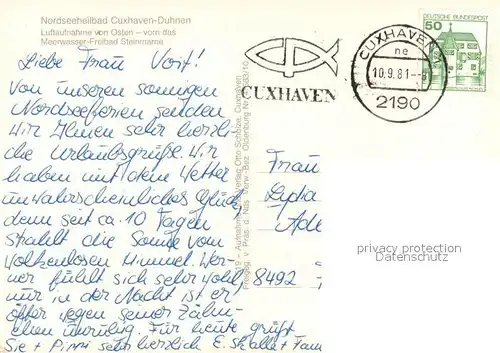 Nordseeheilbad Cuxhaven-Duhnen
Luftaufnahme von Osten - vorn das
Meerwasser-Freibad Steinmarne
Liebe Frau Vorf!
Von unseren sonnigen
Nordseeferien senden
wir Ihnen sehr herzli
che Urlaubsgrüße. Wir
haben mit dem Wetter
unwahrscheinliches Glück,
denn seit ca. 10 Tagen
strahlt die Sonne vom
wolkenlosen Himmel. Wer-
ner fühlt sich sehr wohl,
nur in der Nacht ist er
öfter wegen seiner Zähn-
chen unruhig. Für heute grüßt
Sie + Pippi sehr herzlich E. + Fam
CUXHAVEN
CUXHAVEN 1
ne
10.9.81
2190
DEUTSCHE BUNDESPOST
50
Frau
Lydia
Ade
8492
Verlag Otto Schulze, Cuxhaven
Freigeg. v. Präs. d. Nds. Verw.-Bez. Oldenburg
privacy protection
Datenschutz